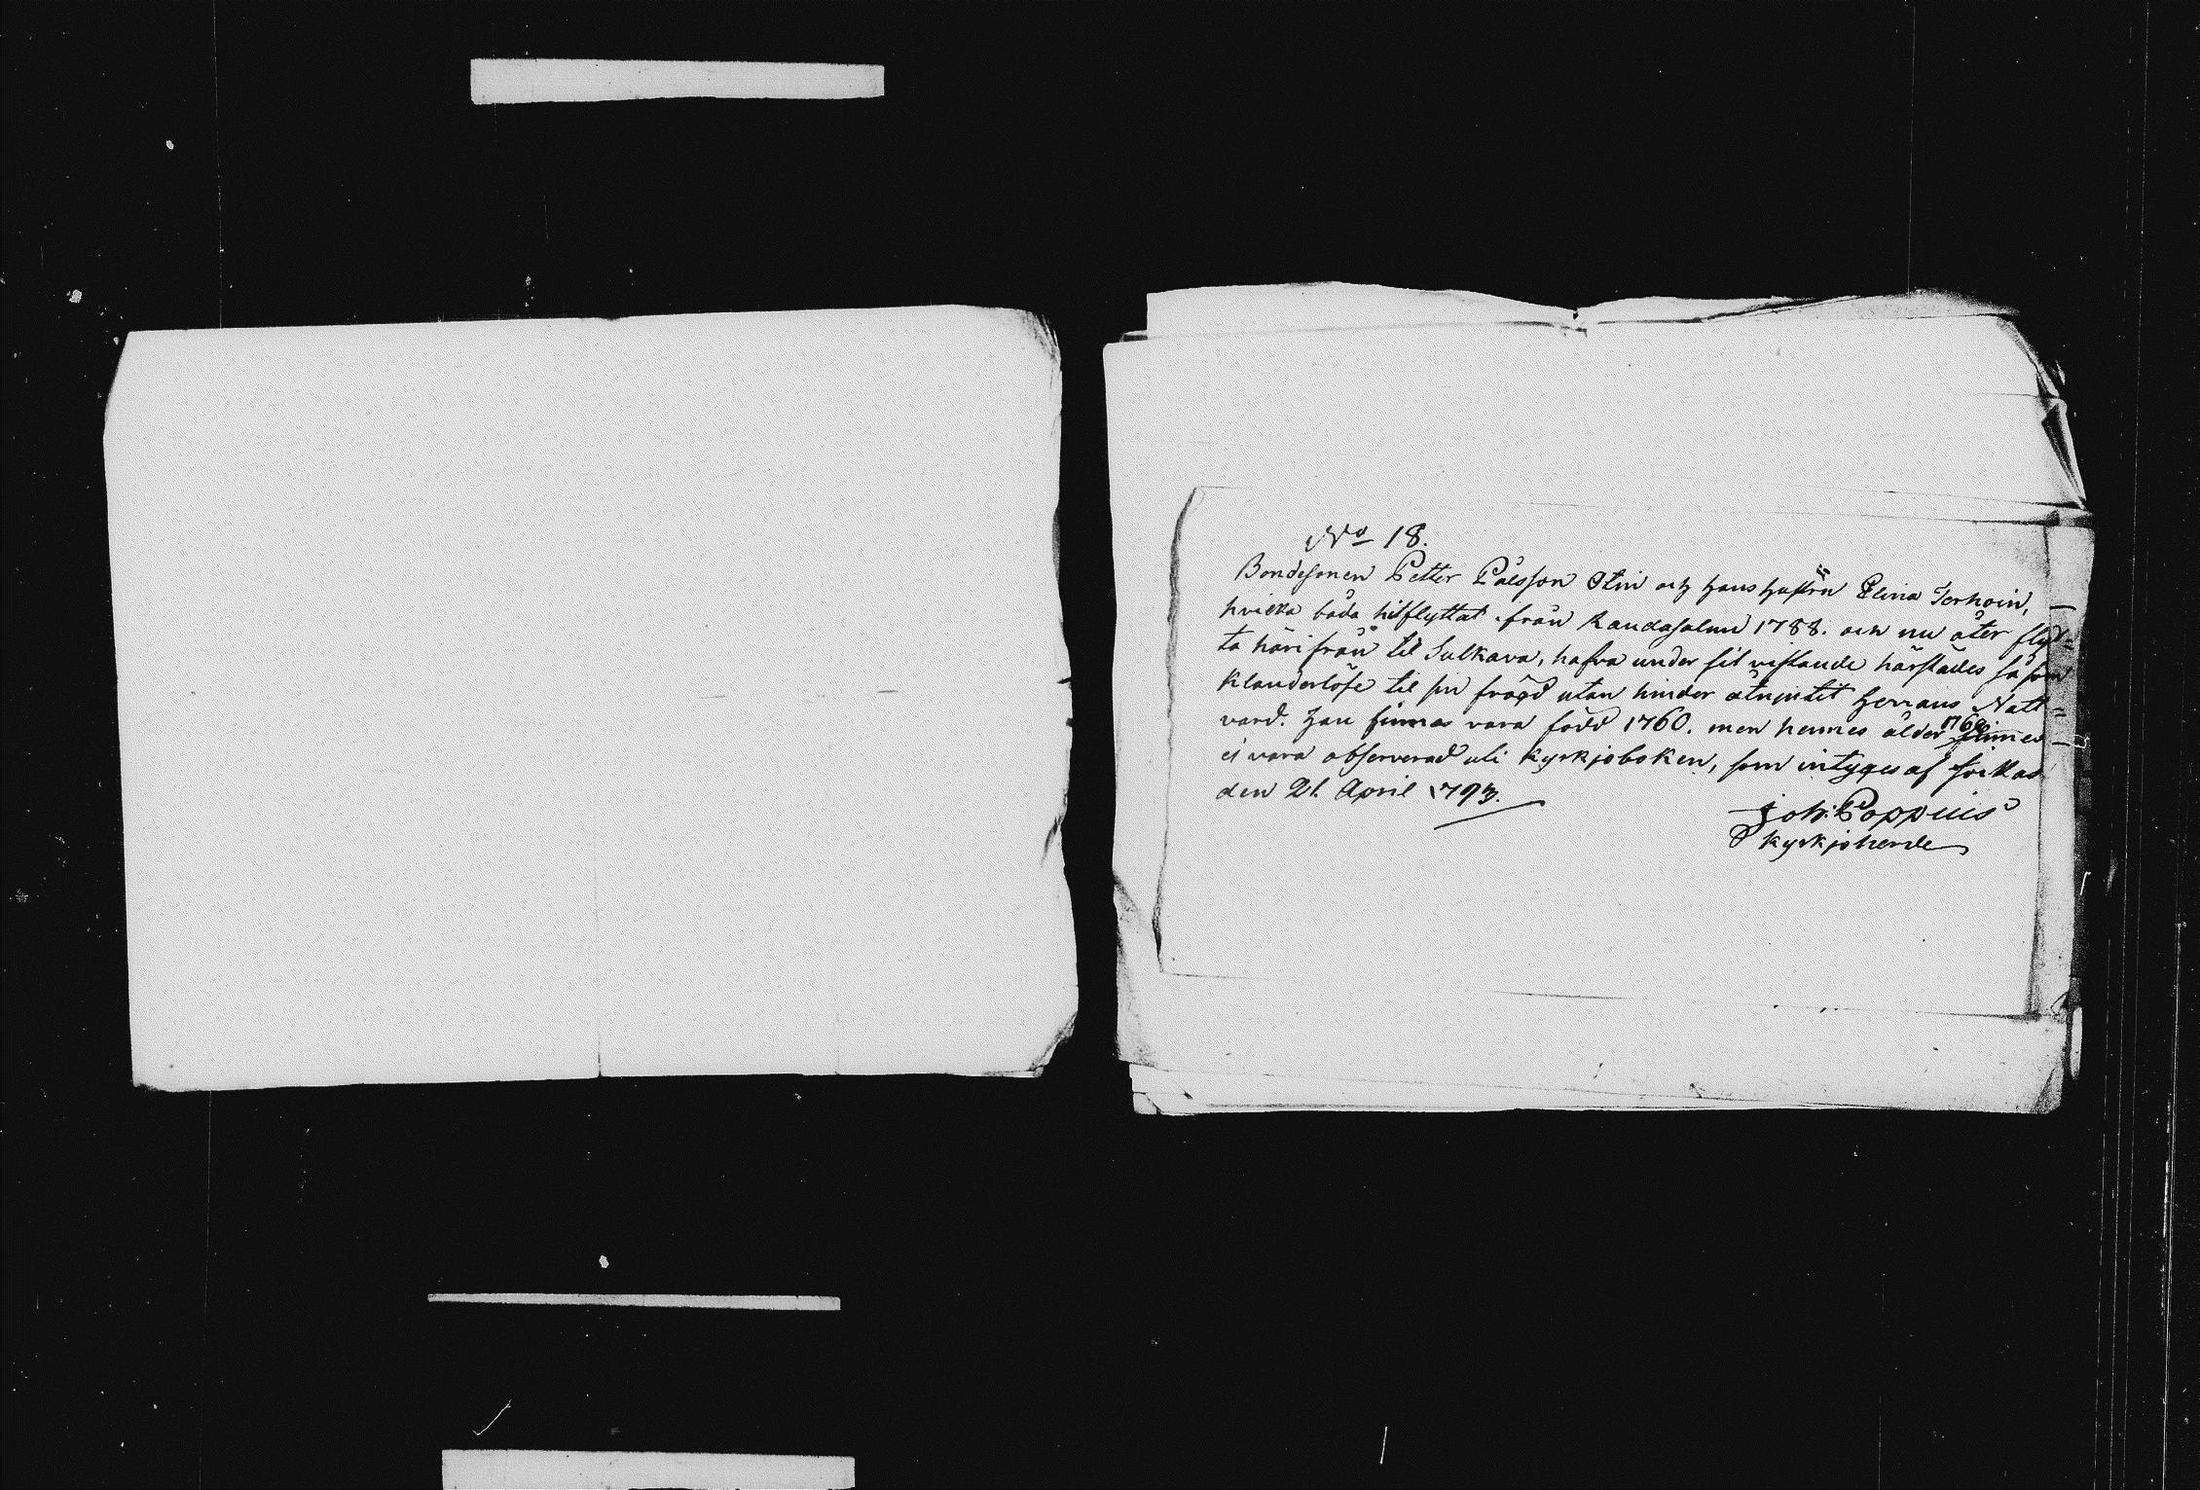 No 18.
Bondesonen Petter Pålsson Otin och hans hustru Elina Terhoin,
hvilka båda hitflyttat från Randasalmi 1788. och nu åter flyt=
ta härifrån til Sulkava, hafva under sit vistande härstädes såsom
klanderlöse til sin frägd utan hinder åtnjutit Herrans Natt=
vard. Han finnes vara född 1760. men hennes ålder 1768 finnes
ej vara observerad uti kyrkjoboken, som intygas af Joikas
den 21 April 1793.
Joh: Poppius
kyrkjoherde